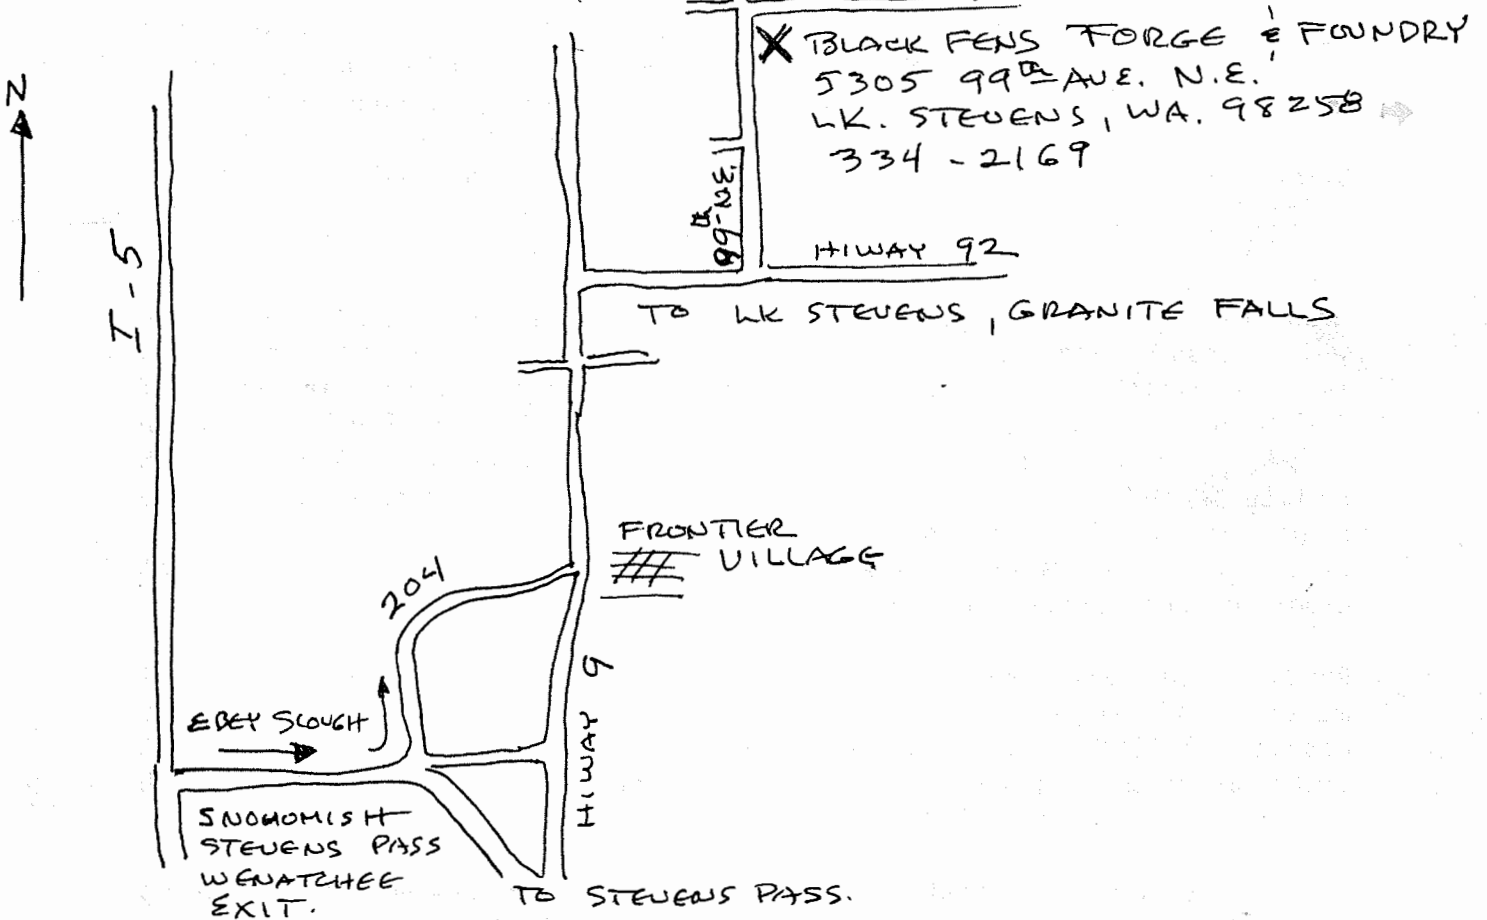 N
X BLACK FENS FORGE & FOUNDRY
5305 99th AVE. N.E.
LK. STEVENS, WA. 98258
334-2169
99th N.E.
I-5
HIWAY 92
TO LK STEVENS, GRANITE FALLS
FRONTIER
VILLAGE
204
HIWAY 9
EBEY SLOUGH
SNOHOMISH
STEVENS PASS
WENATCHEE
EXIT.
TO STEVENS PASS.